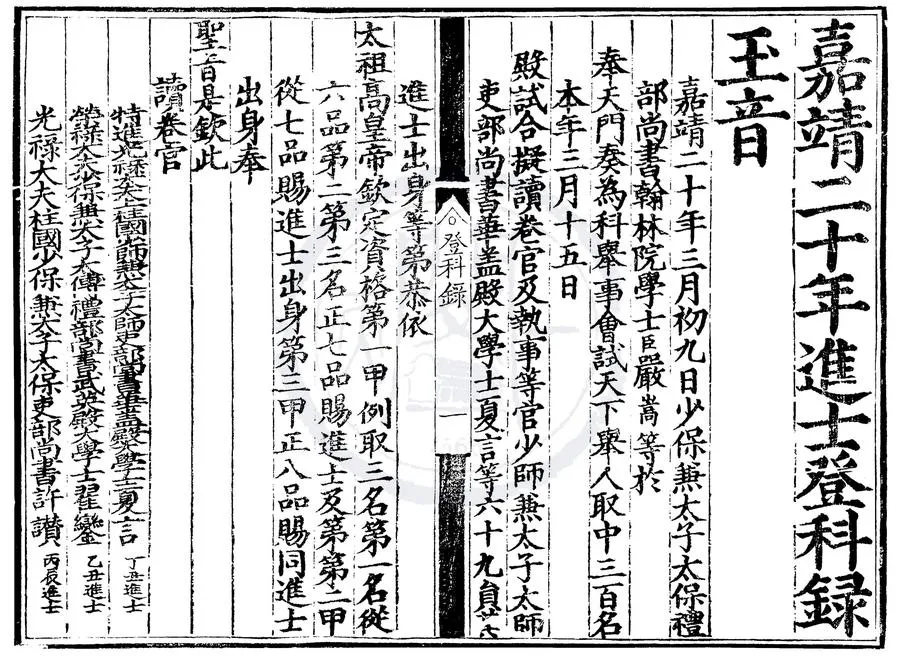 嘉靖二十年進士登科録
玉音
嘉靖二十年三月初九日少保兼太子太保禮
部尚書翰林院學士臣嚴嵩等於
奉天門奏為科舉事會試天下舉人取中三百名
本年三月十五日
殿試合擬讀卷官及執事等官少師兼太子太師
吏部尚書華盖殿大學士夏言等六十九員其
登科録 一
進士出身等第恭依
太祖高皇帝欽定資格第一甲例取三名第一名從
六品第二第三名正七品賜進士及第第二甲
從七品賜進士出身第三甲正八品賜同進士
出身奉
聖旨是欽此
讀卷官
特進光祿大夫上柱國少師兼太子太師吏部尚書華盖殿大學士夏言 丁丑進士
榮祿大夫少保兼太子太傅禮部尚書武英殿大學士翟鑾 乙丑進士
光祿大夫柱國少保兼太子太保吏部尚書許讃 丙辰進士